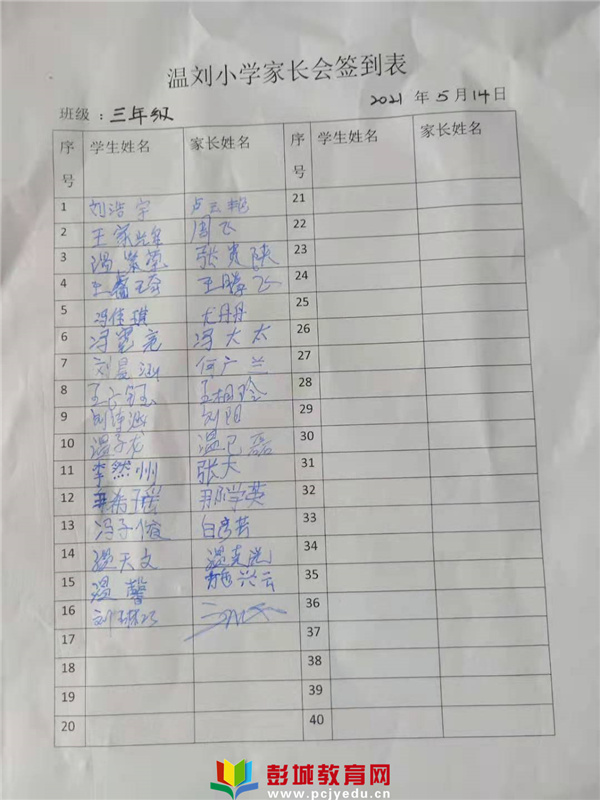 温刘小学家长会签到表
班级：三年级 2021 年 5 月 14 日
序号 学生姓名 家长姓名 序号 学生姓名 家长姓名
1 刘浩宇 卢云艳 21
2 王家 周飞 22
3 温紫萱 张贵侠 23
4 王 王腾飞 24
5 冯佳琪 尤丹丹 25
6 冯宽亮 冯大太 26
7 刘晨涵 何广兰 27
8 王子钰 王相玲 28
9 刘诗涵 刘阳 29
10 温子龙 温已磊 30
11 李然州 张大 31
12 邢学英 32
13 冯子俊 白彦芸 33
14 温天文 温克 34
15 温馨 施兴云 35
16 刘 36
17 37
18 38
19 39
20 40
彭城教育网
www.pcjyedu.cn